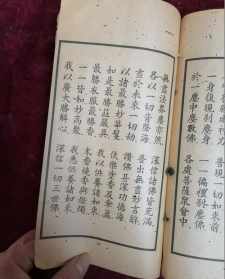 普現一切如來前
一身復現剎塵身 一一徧禮剎塵佛
於一塵中塵數佛 各處菩薩眾會中
無盡法界塵亦然 深信諸佛皆充滿
各以一切音聲海 普出無盡妙言辭
盡於未來一切劫 讚佛甚深功德海
以諸最勝妙華鬘 伎樂塗香及傘蓋
如是最勝莊嚴具 我以供養諸如來
最勝衣服最勝香 末香燒香與燈燭
一一皆如妙高聚 我悉供養諸如來
我以廣大勝解心 深信一切三世佛